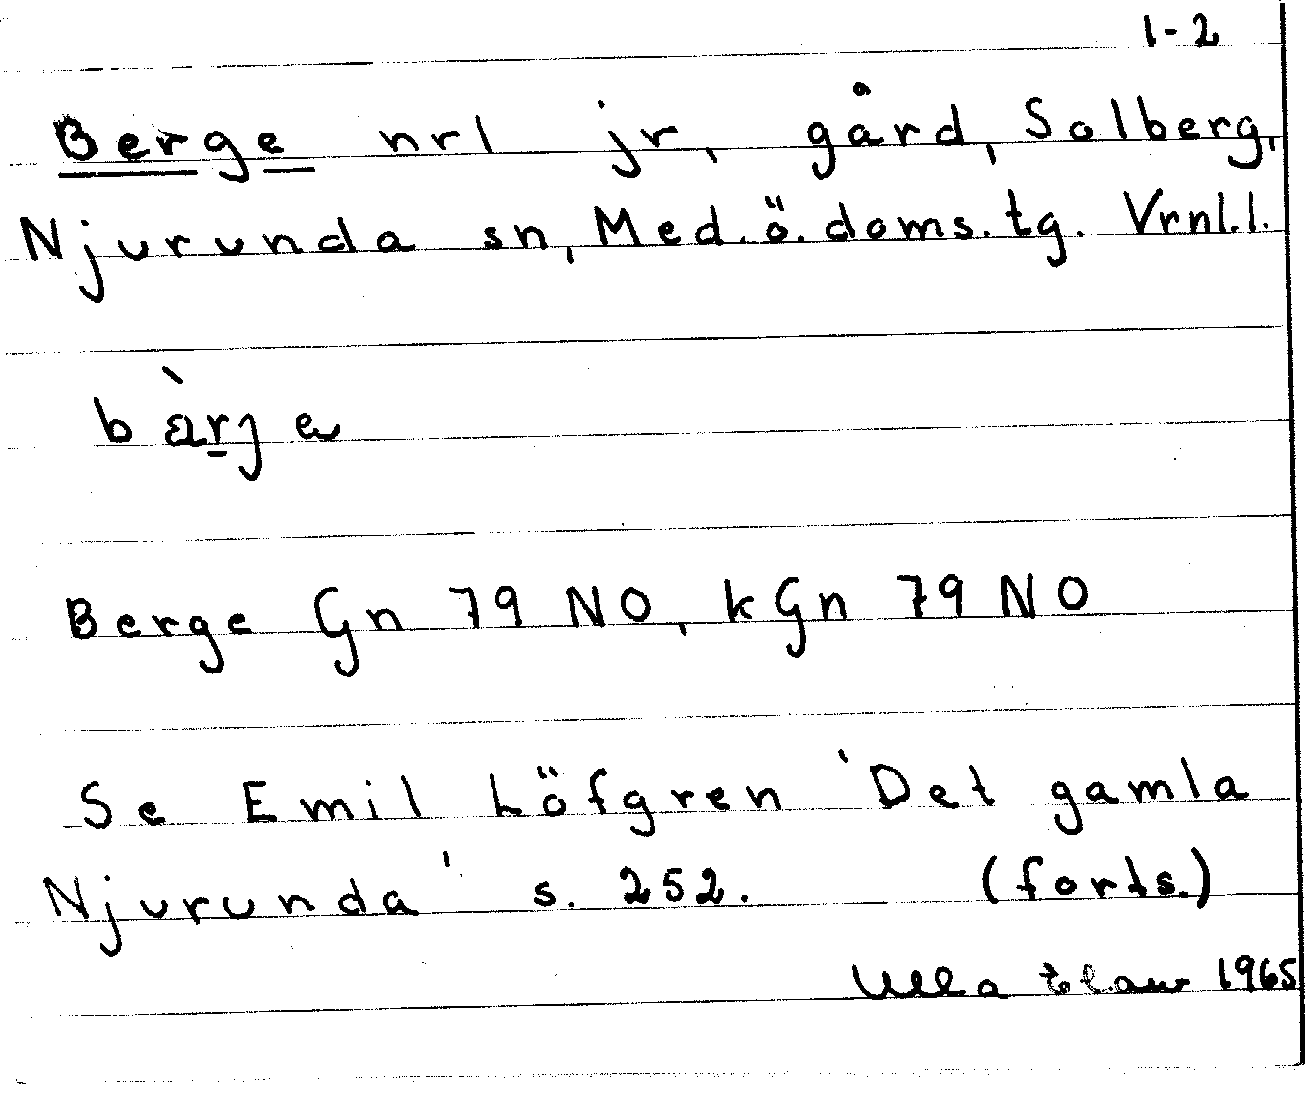 1-2
Berge nrl jr, gård, Solberg,
Njurunda sn, Med.ö.doms.tg. Vrnl.l.
Berge Gn 79 NO, kGn 79 NO
Se Emil Löfgren 'Det gamla
Njurunda' s. 252. (forts.)
Ulla 1965